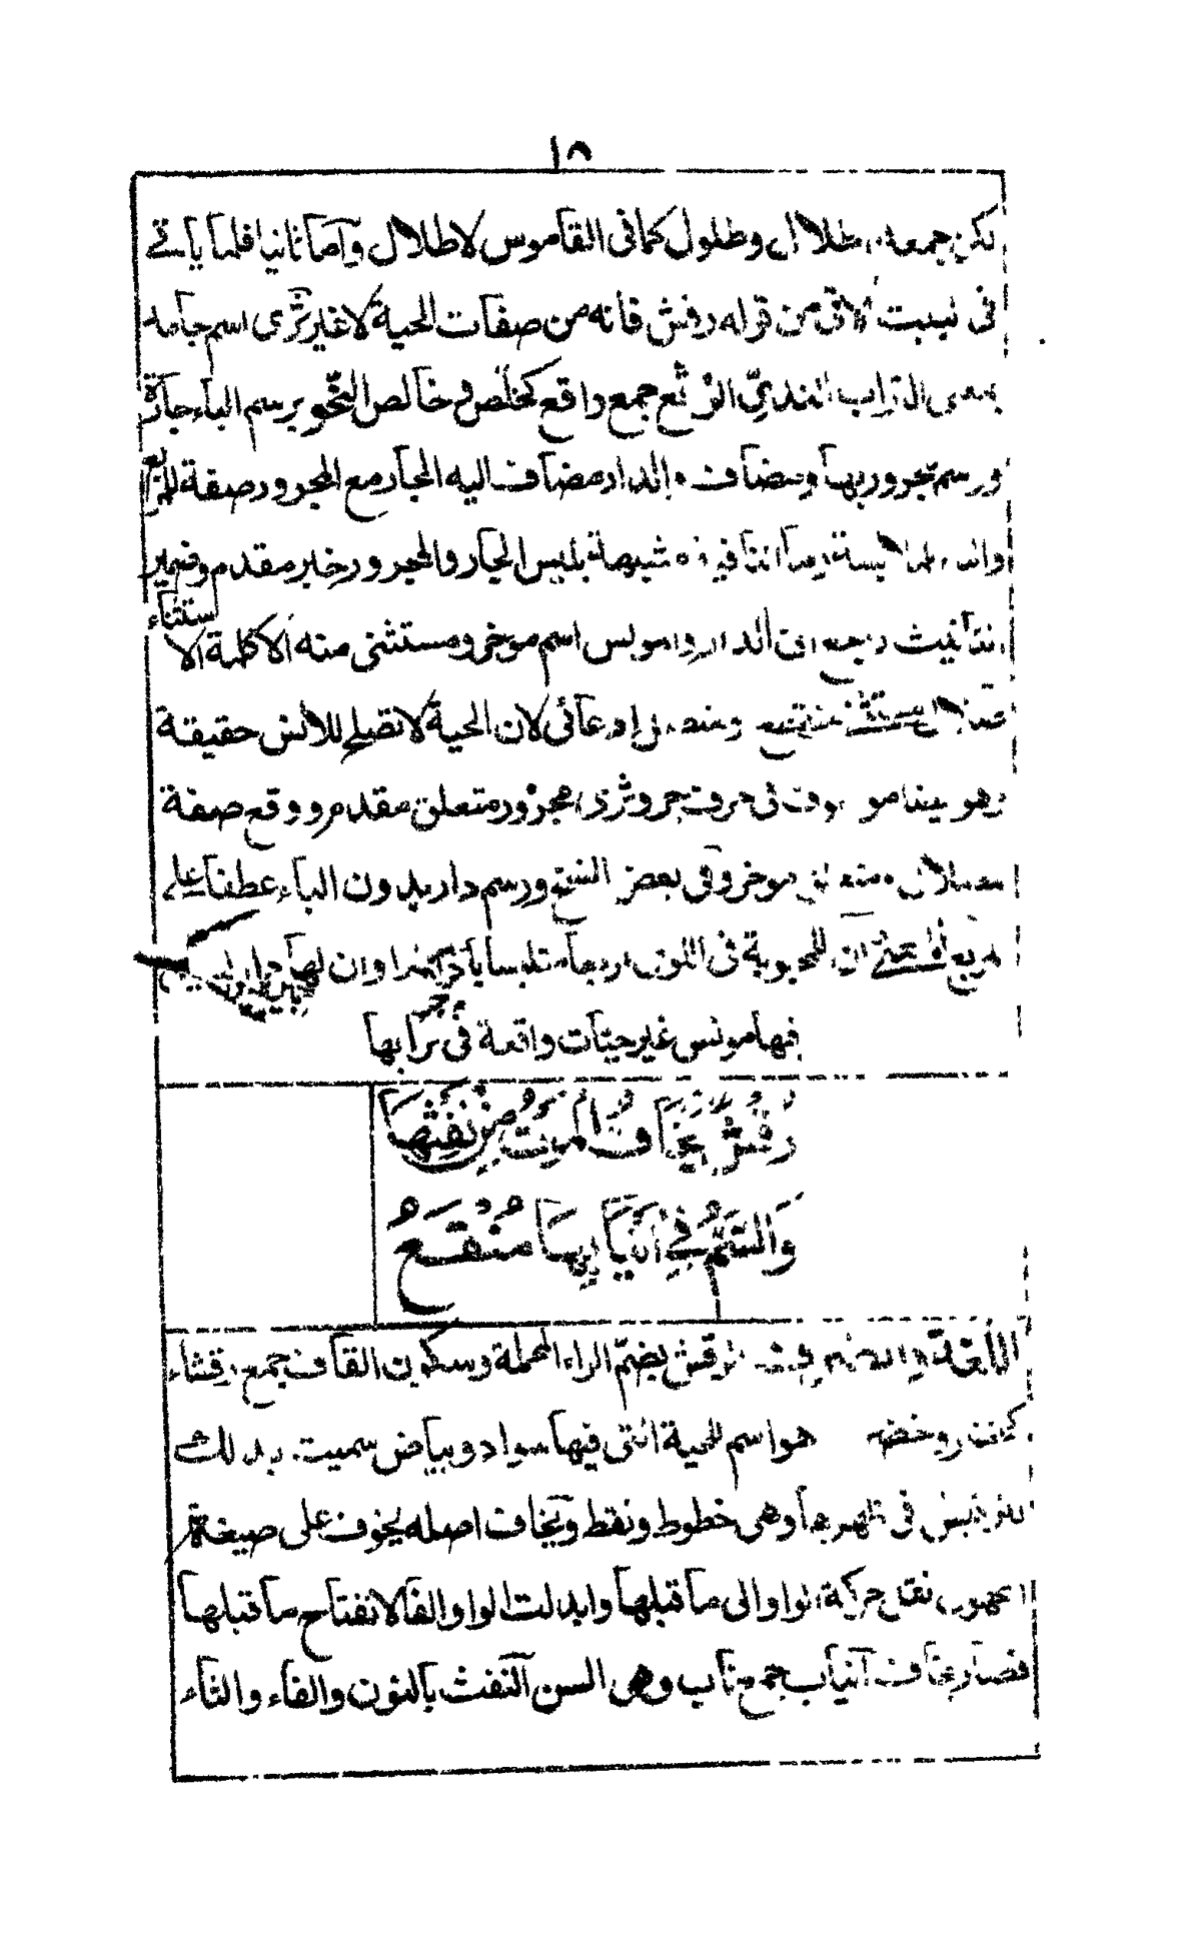 ١٥
لكن جمعه اطلال وطلول كما فى القاموس لا طلال وآما ثانيا فلما ياتے
فى البيت الاتى من قوله رقش فانه من صفات الحية لا غير ثرى اسم جامد
بمعنى التراب الندىّ الوُقّع جمع واقع كخلّص فى خالص النحو برسم الباء جارة
ورسم مجرور بها ومضاف والدار مضاف اليه الجار مع المجرور صفة للمربع
والباء للملابسة وما نافية مشبهة بليس الجار والمجرور خبر مقدم وضمير
التانيث راجع الى الدار ومونس اسم موخر ومستثنى منه الا كلمة الا استثناء
صلال مستثنى منقطع ومتصل ادعائى لان الحية لا تصلح للانس حقيقة
وهو بينا مو فى حرف جر وثرى مجرور متعلق مقدم ووقع صفة
صلال متعلق موخر وفى بعض النسخ ورسم دار بدون الباء عطفا على
مربع المعنى ان للمحبوبة فى اللوى اربعا متلبسا باثرهذا وان لها دار ليس
فيها مونس غير حيات واقعة فى ترابها
رُقْشٌ يُخَافُ الْمَوْتُ مِنْ نَفْثِهَا
وَالسَّمُّ فِي أَنْيَابِهَا مُنْقَعُ
اللغة والصرف الرقش بضمّ الراء المهملة وسكون القاف جمع رقشاء
هو اسم للحية انثى فيها سواد وبياض سميت بذلك
لترقيش فى ظهرها وهى خطوط ونقط ويخاف اصله يخوف على صيغة
المجهول نقل حركة الواو الى ما قبلها وابدلت الواو الفا لانفتاح ما قبلها
فصار يخاف انياب جمع ناب وهى السن النفث بالنون والفاء والثاء